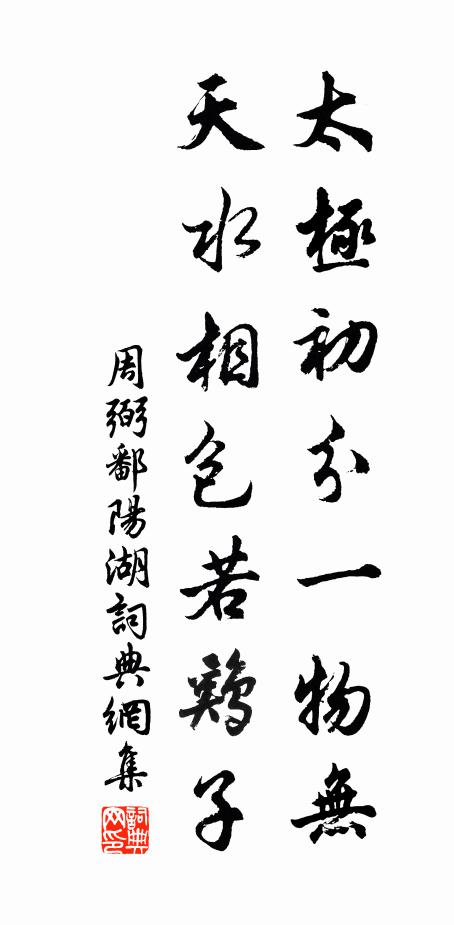 太極初分一物無
天水相包若鷄子
周弼鄱陽湖詞典網集
詞典網印